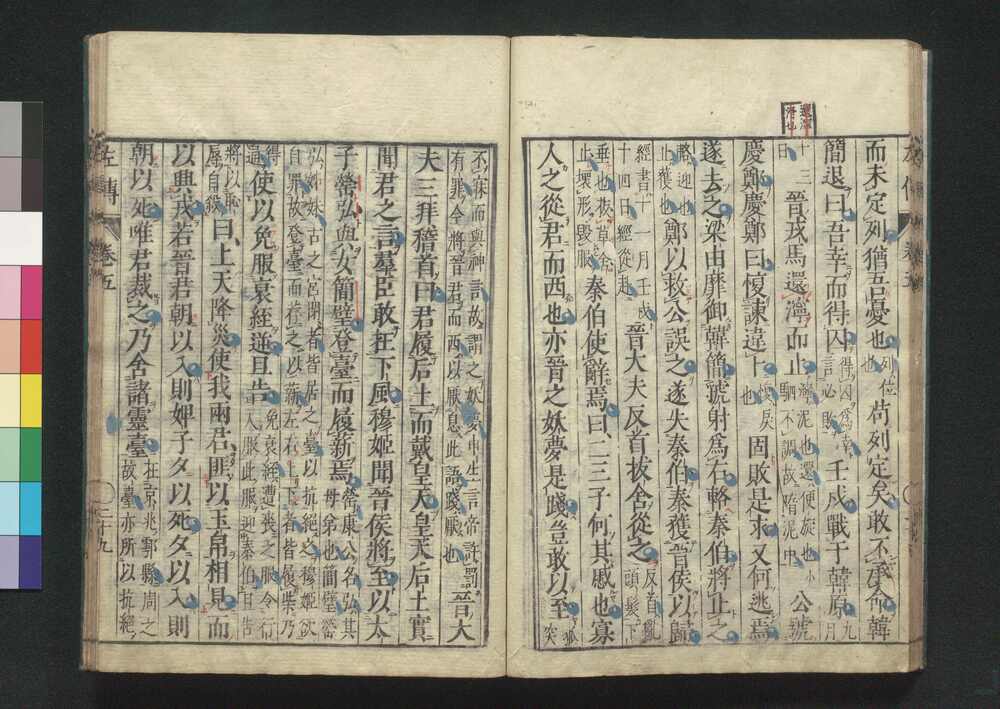 而未定列猶吾憂也列位也苟列定矣敢不承命韓
簡退曰吾幸而得囚得囚爲幸言必敗壬戌戰于韓原九月
十三日晉戎馬還濘而止濘泥也還便旋也小駟不調故隋泥中公號
慶鄭慶鄭曰愎諫違卜愎戾也固敗是求又何逃焉
遂去之梁由靡御韓簡虢射爲右輅秦伯將止之
輅迎也止獲也鄭以救公誤之遂失秦伯秦獲晉侯以歸
經書十一月壬戌十四日經從赴晉大夫反首拔舍從之反首亂頭髮下
垂也拔草舍止壞形毀服秦伯使辭焉曰二三子何其慼也寡
人之從君而西也亦晉之妖夢是踐豈敢以至狐突
不寐而與神言故謂之妖夢申生言帝許罰有罪今將晉君而西以厭息此語踐厭也晉大
夫三拜稽首曰君履后土而戴皇天皇天后土實
聞君之言羣臣敢在下風穆姬聞晉侯將至以太
子罃弘與女簡璧登臺而履薪焉罃康公名弘其母弟也簡璧罃
弘姊妹古之宮閉者皆居之臺以抗絕之穆姬欲自罪故登臺而荐之以薪左右上下者皆履柴乃
得通使以免服衰絰逆且告免衰絰遭喪之服令行人服此服迎秦伯且告
將以恥辱自殺曰上天降災使我兩君匪以玉帛相見而
以興戎若晉君朝以入則婢子夕以死夕以入則
朝以死唯君裁之乃舍諸靈臺在京兆鄠縣周之故臺亦所以抗絕
左傳 卷五 二十九